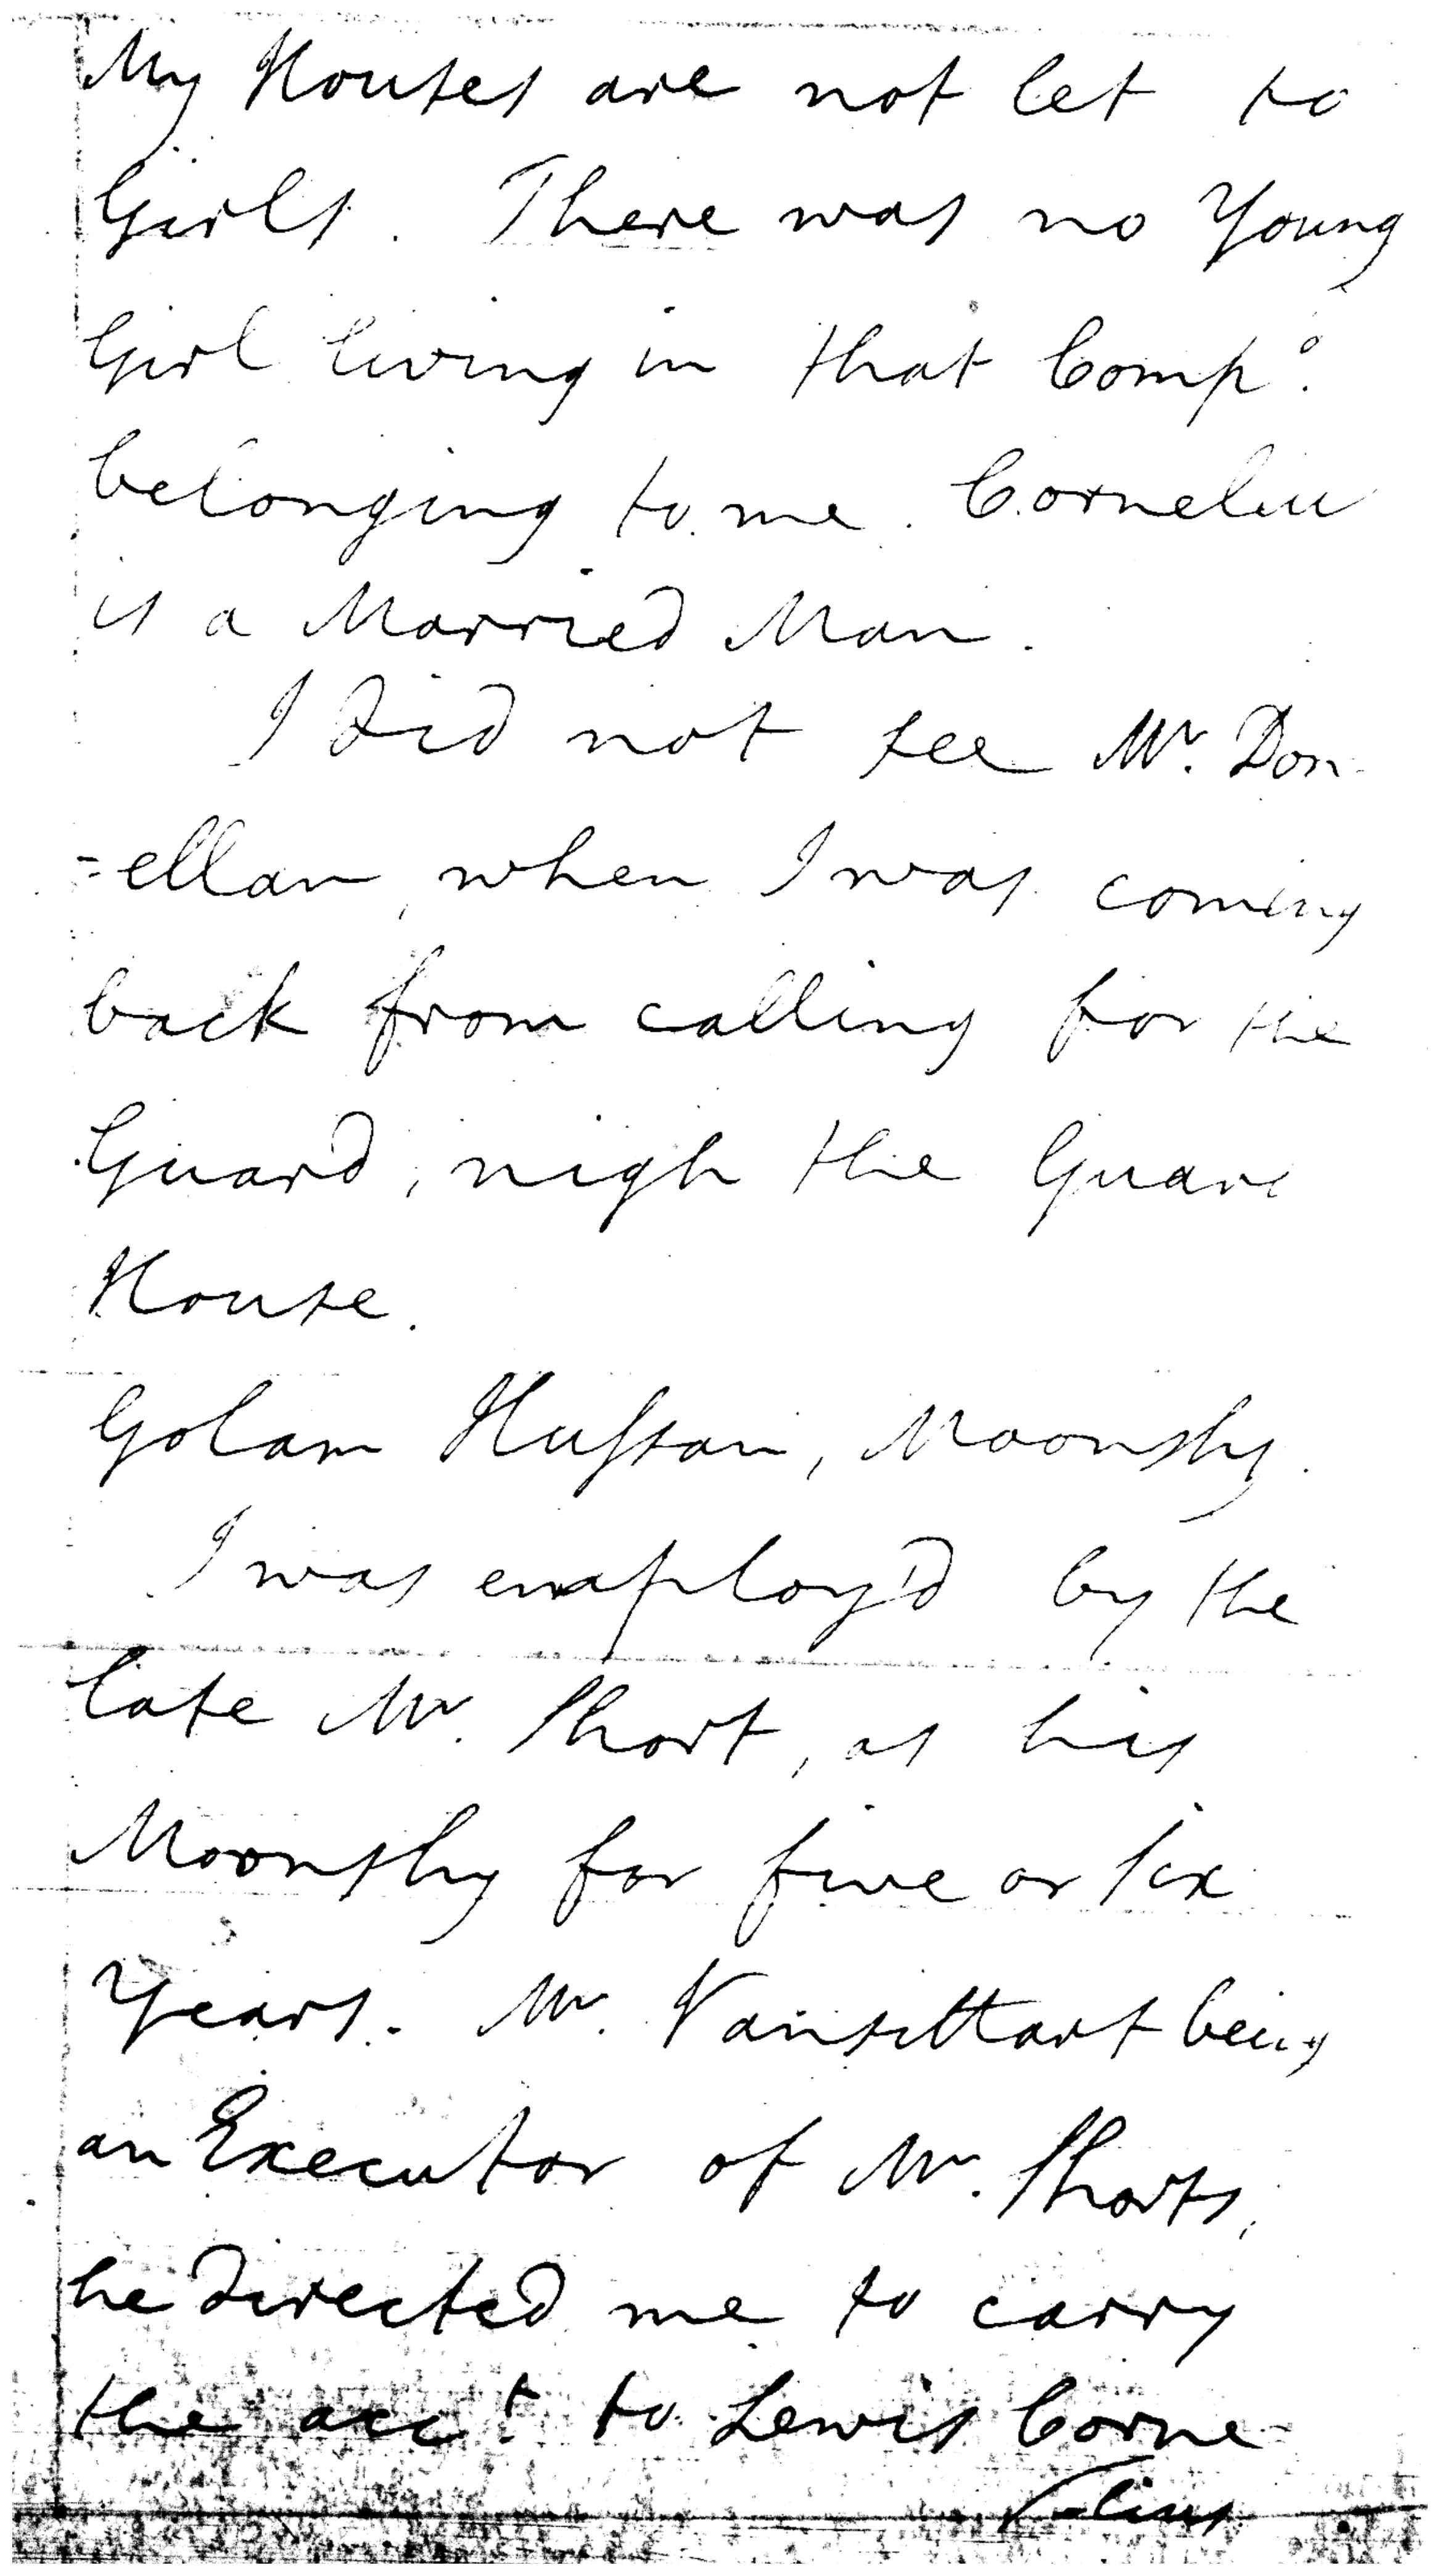 My Houses are not let to
Girls. There was no Young
Girl living in that Compº.
belonging to me. Cornelius
is a Married Man.
I did not see Mr. Don
=ellan, when I was coming
back from calling for the
Guard, nigh the Guard
House.
Golam Hussan, Moonshy.
I was employ'd by the
late Mr. Short, as his
Moonshy for five or six
Years. Mr. Vansittart being
an Executor of Mr. Shorts,
he directed me to carry
the acct. to Lewis Corne
=lius